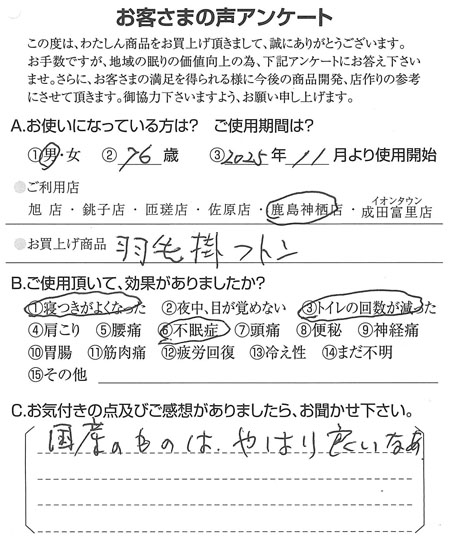 お客さまの声アンケート
この度は、わたしん商品をお買上げ頂きまして、誠にありがとうございます。
お手数ですが、地域の眠りの価値向上の為、下記アンケートにお答え下さい
ませ。さらに、お客さまの満足を得られる様に今後の商品開発、店作りの参考
にさせて頂きます。御協力下さいますよう、お願い申し上げます。
A.お使いになっている方は? ご使用期間は?
①男・女 ②76歳 ③2025年11月より使用開始
●ご利用店
旭店・銚子店・匝瑳店・佐原店・鹿島神栖店・イオンタウン成田富里店
●お買上げ商品 羽毛掛フトン
B.ご使用頂いて、効果がありましたか?
①寝つきがよくなった ②夜中、目が覚めない ③トイレの回数が減った
④肩こり ⑤腰痛 ⑥不眠症 ⑦頭痛 ⑧便秘 ⑨神経痛
⑩胃腸 ⑪筋肉痛 ⑫疲労回復 ⑬冷え性 ⑭まだ不明
⑮その他
C.お気付きの点及びご感想がありましたら、お聞かせ下さい。
国産のものは、やはり良いなあ